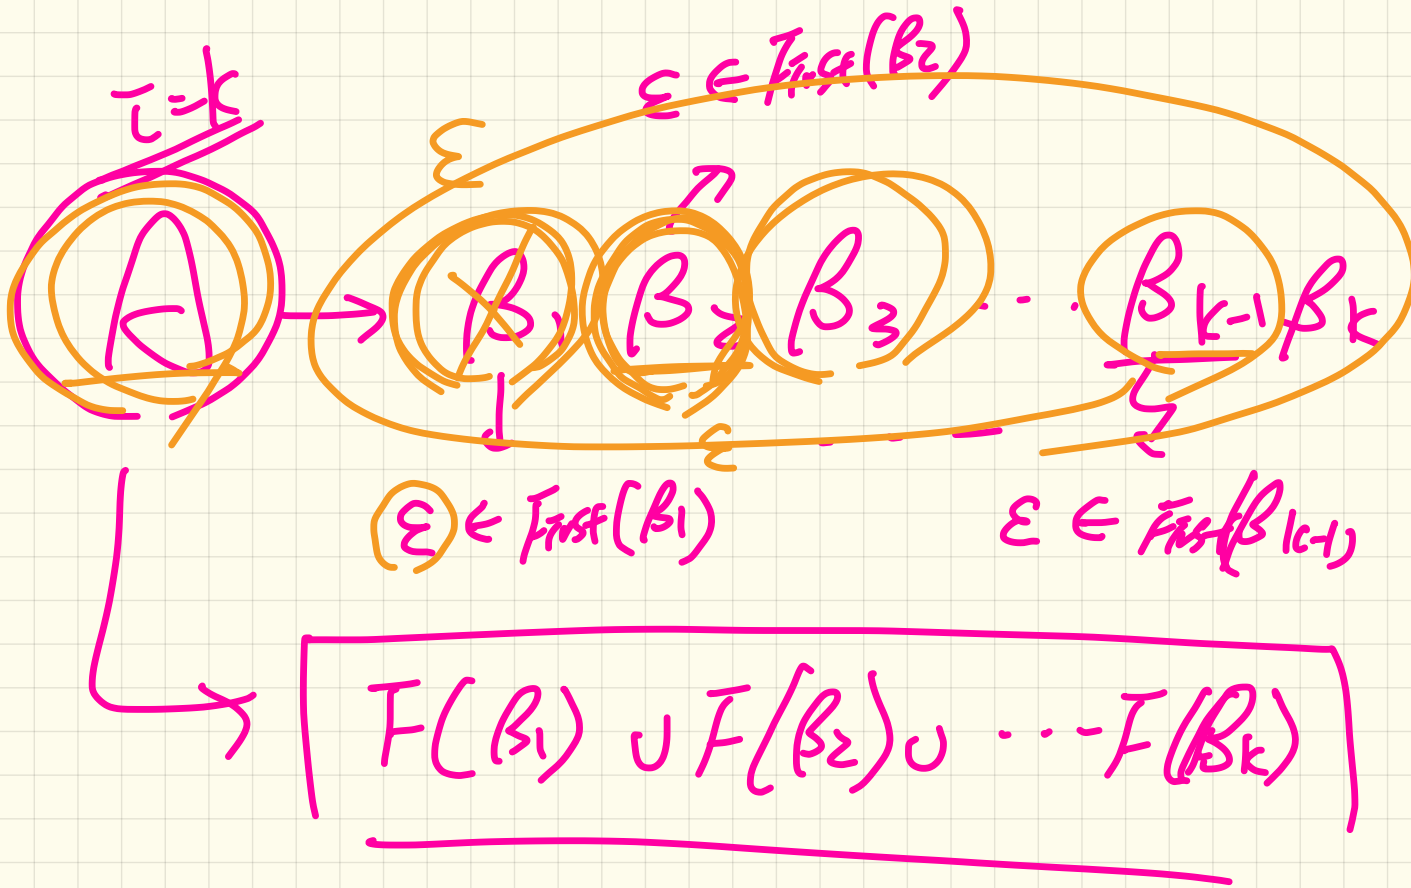 i=k
ε ∈ First(β2)
ε
A → β1 β2 β3 ... βk-1 βk
ε
ε ∈ First(β1)
ε ∈ First(βk-1)
F(β1) ∪ F(β2) ∪ ... F(βk)